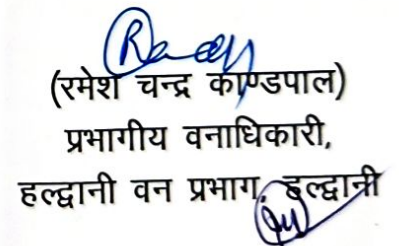 (रमेश चन्द्र काण्डपाल)
प्रभागीय वनाधिकारी,
हल्द्वानी वन प्रभाग, हल्द्वानी